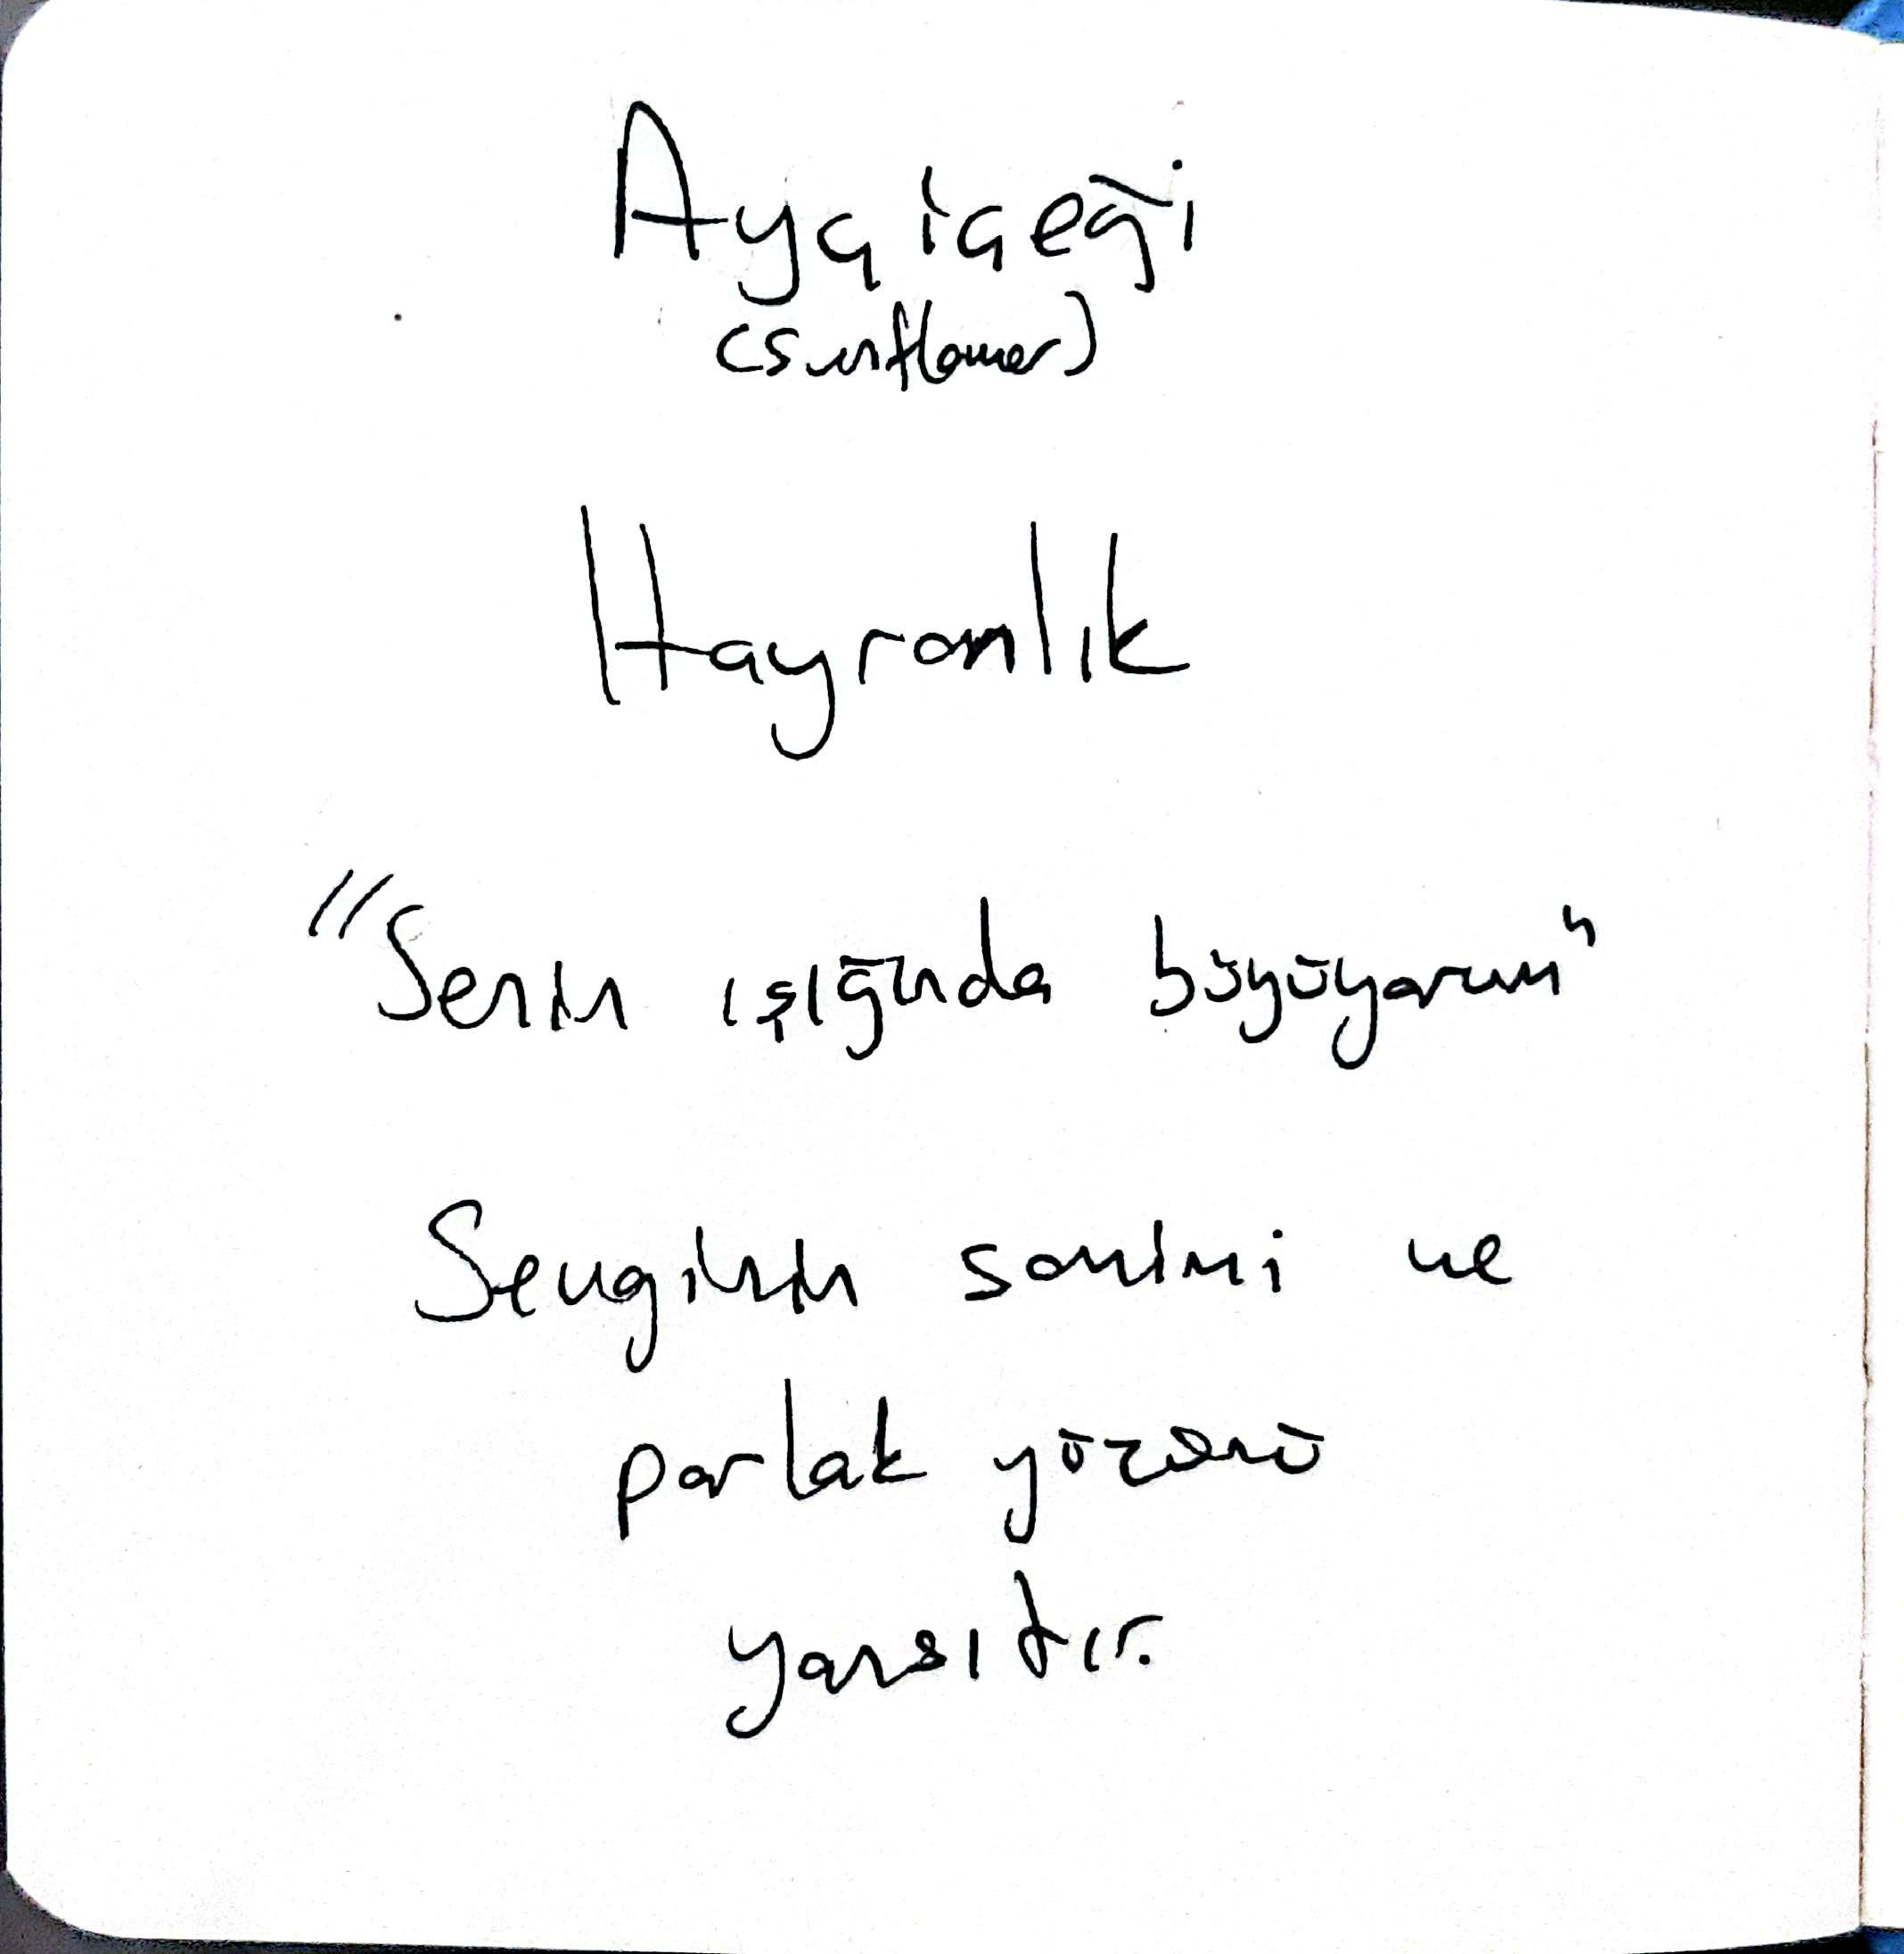 Ayçiçeği
(sunflower)
Hayranlık
"Senin ışığında büyüyorum"
Sevginin samimi ve
parlak yüzünü
yansıtır.